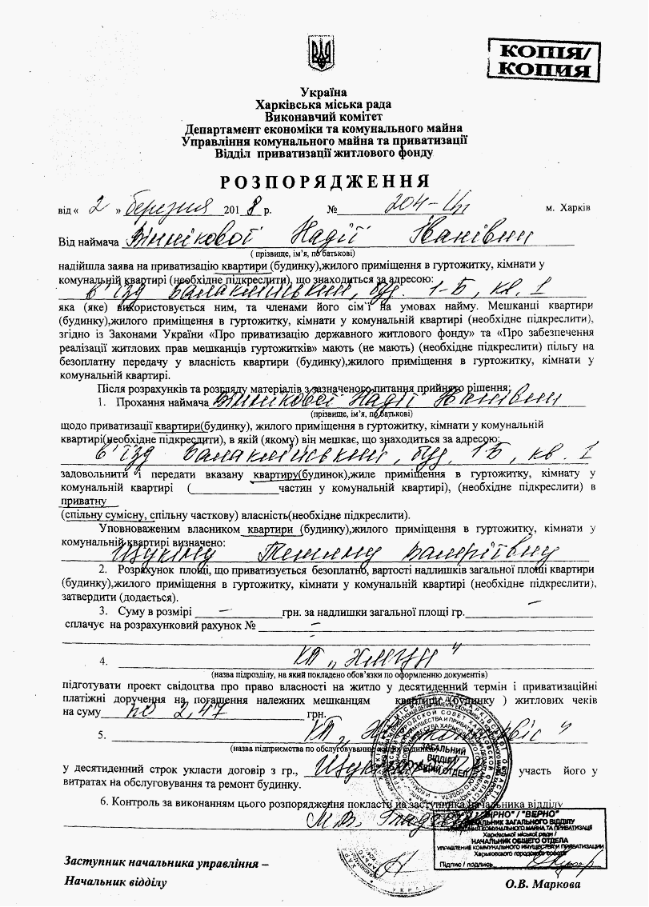 КОПІЯ/
КОПИЯ
Україна
Харківська міська рада
Виконавчий комітет
Департамент економіки та комунального майна
Управління комунального майна та приватизації
Відділ приватизації житлового фонду
РОЗПОРЯДЖЕННЯ
від « 2 » березня 2018 р. № 204- м. Харків
Від наймача Віннікової Надії Іванівни
( прізвище, ім’я, по батькові)
надійшла заява на приватизацію квартири (будинку),жилого приміщення в гуртожитку, кімнати у
комунальній квартирі (необхідне підкреслити), що знаходиться за адресою:
в'їзд Балакліївський, буд. 1-Б, кв. 1
яка (яке) використовується ним, та членами його сім´ї на умовах найму. Мешканці квартири
(будинку),жилого приміщення в гуртожитку, кімнати у комунальній квартирі (необхідне підкреслити),
згідно із Законами України «Про приватизацію державного житлового фонду» та «Про забезпечення
реалізації житлових прав мешканців гуртожитків» мають (не мають) (необхідне підкреслити) пільгу на
безоплатну передачу у власність квартири (будинку),жилого приміщення в гуртожитку, кімнати у
комунальній квартирі.
Після розрахунків та розгляду матеріалів з зазначеного питання прийнято рішення:
1. Прохання наймача Віннікової Надії Іванівни
(прізвище, ім’я, по батькові)
щодо приватизації квартири(будинку), жилого приміщення в гуртожитку, кімнати у комунальній
квартирі(необхідне підкреслити), в якій (якому) він мешкає, що знаходиться за адресою:
в'їзд Балакліївський, буд. 1-Б, кв. 1
задовольнити і передати вказану квартиру(будинок),жиле приміщення в гуртожитку, кімнату у
комунальній квартирі (____________частин у комунальній квартирі), (необхідне підкреслити) в
приватну
(спільну сумісну, спільну часткову) власність(необхідне підкреслити).
Уповноваженим власником квартири (будинку),жилого приміщення в гуртожитку, кімнати у
комунальній квартирі визначено:
Щукіну Тетяну Валеріївну
2. Розрахунок площі, що приватизується безоплатно, вартості надлишків загальної площі квартири
(будинку),жилого приміщення в гуртожитку, кімнати у комунальній квартирі (необхідне підкреслити),
затвердити (додається).
3. Суму в розмірі — грн. за надлишки загальної площі гр. —
сплачує на розрахунковий рахунок № —
4. КП „ "
(назва підрозділу, на який покладено обов’язки по оформленню документів)
підготувати проект свідоцтва про право власності на житло у десятиденний термін і приватизаційні
платіжні доручення на погашення належних мешканцям квартири (будинку ) житлових чеків
на суму 2,47 грн.
5. КП „
(назва підприємства по обслуговуванню
у десятиденний строк укласти договір з гр., участь його у
витратах на обслуговування та ремонт будинку.
6. Контроль за виконанням цього розпорядження покласти на заступника начальника відділу
М.В.
ЗАГАЛЬНИЙ
ВІДДІЛ
"ВІРНО" / "ВЕРНО"
НАЧАЛЬНИК ЗАГАЛЬНОГО ВІДДІЛУ
УПРАВЛІННЯ КОМУНАЛЬНОГО МАЙНА ТА ПРИВАТИЗАЦІЇ
Харківської міської ради /
НАЧАЛЬНИК ОБЩЕГО ОТДЕЛА
УПРАВЛЕНИЕ КОММУНАЛЬНОГО ИМУЩЕСТВА И ПРИВАТИЗАЦИИ
Харьковского городского совета
Підпис / подпись
Заступник начальника управління –
Начальник відділу О.В. Маркова